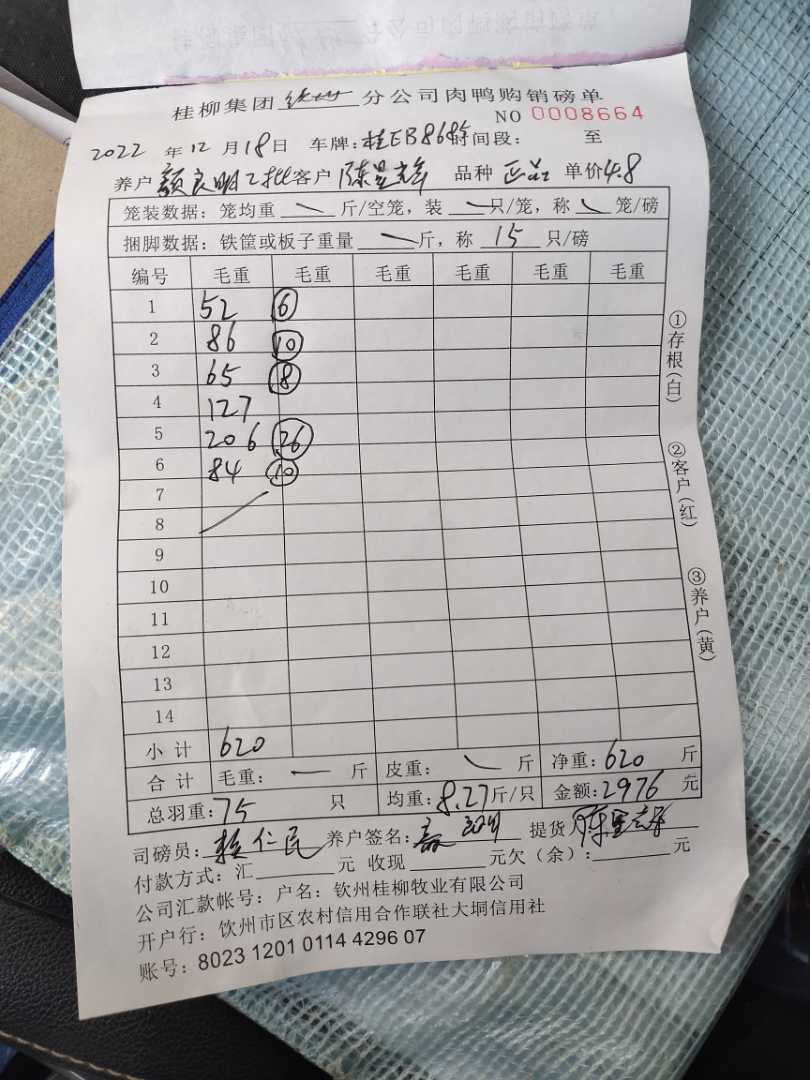 桂柳集团 钦州 分公司肉鸭购销磅单
NO 0008664
2022 年 12 月 18 日 车牌: 时间段: 至
养户 颜良明乙批 客户 品种 正品 单价 4.8
笼装数据: 笼均重 斤/空笼, 装 只/笼, 称 笼/磅
捆脚数据: 铁筐或板子重量 斤, 称 15 只/磅
编号 毛重 毛重 毛重 毛重 毛重 毛重
1 52 6
2 86 10
3 65 8
4 127
5 206 26
6 84 10
7
8
9
10
11
12
13
14
小计 620
合计 毛重: 斤 皮重: 斤 净重: 620 斤
总羽重: 75 只 均重: 8.27 斤/只 金额: 2976 元
司磅员: 养户签名: 提货人
付款方式: 汇 元 收现 元欠(余): 元
公司汇款帐号: 户名: 钦州桂柳牧业有限公司
开户行: 钦州市区农村信用合作联社大垌信用社
账号: 8023 1201 0114 4296 07
①存根(白)
②客户(红)
③养户(黄)